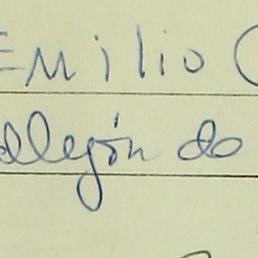 Emilio
allejón do